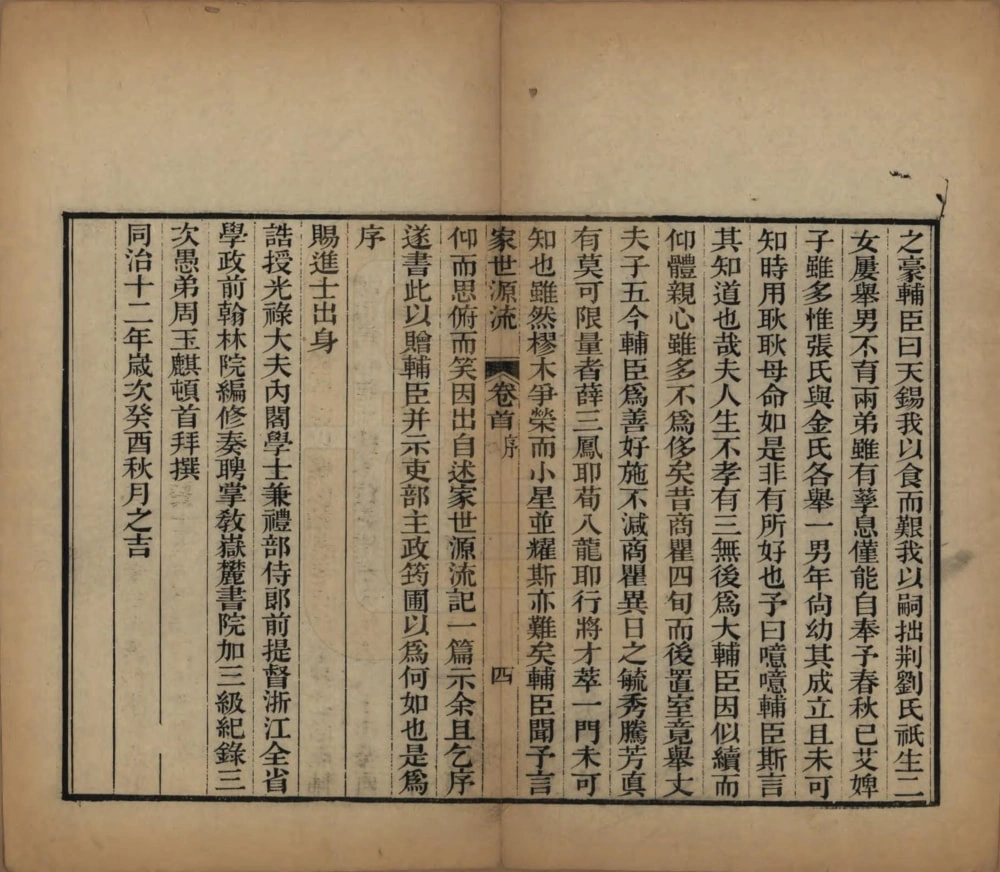 之豪輔臣曰天錫我以食而艱我以嗣拙荆劉氏祇生二
女屢舉男不育兩弟雖有孳息僅能自奉予春秋已艾婢
子雖多惟張氏與金氏各舉一男年尙幼其成立且未可
知時用耿耿母命如是非有所好也予曰噫噫輔臣斯言
其知道也哉夫人生不孝有三無後爲大輔臣因似續而
仰體親心雖多不爲侈矣昔商瞿四旬而後置室竟舉丈
夫子五今輔臣爲善好施不減商瞿異日之毓秀騰芳眞
有莫可限量者薛三鳳耶荀八龍耶行將才萃一門未可
知也雖然樛木爭榮而小星並耀斯亦難矣輔臣聞予言
家世源流 卷首 序 四
仰而思俯而笑因出自述家世源流記一篇示余且乞序
遂書此以贈輔臣并示吏部主政筠圃以爲何如也是爲
序
賜進士出身
誥授光祿大夫內閣學士兼禮部侍郎前提督浙江全省
學政前翰林院編修奏聘掌敎嶽麓書院加三級紀錄三
次愚弟周玉麒頓首拜撰
同治十二年歲次癸酉秋月之吉